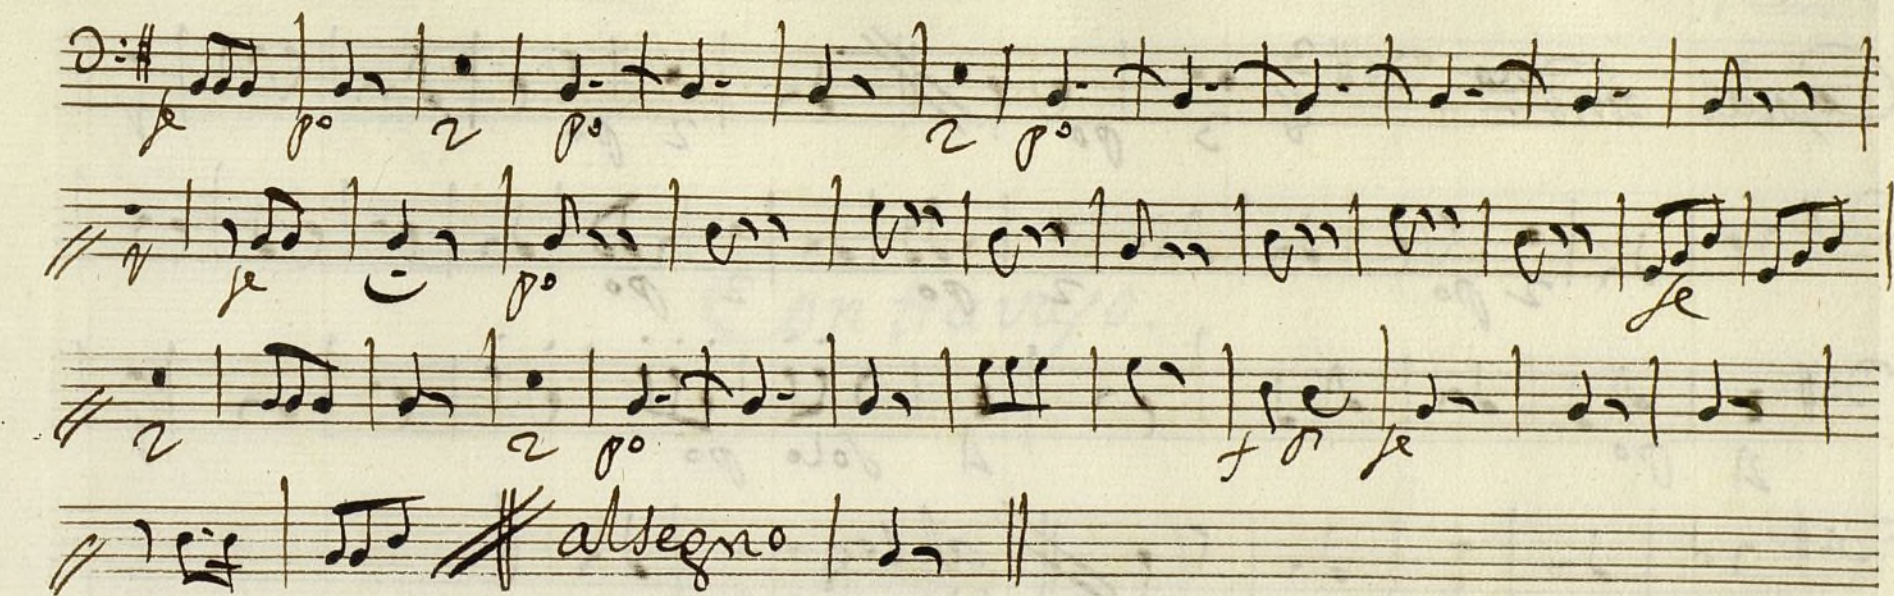 fe po 2 po 2 po
fe po fe
2 2 po f p fe
al segno